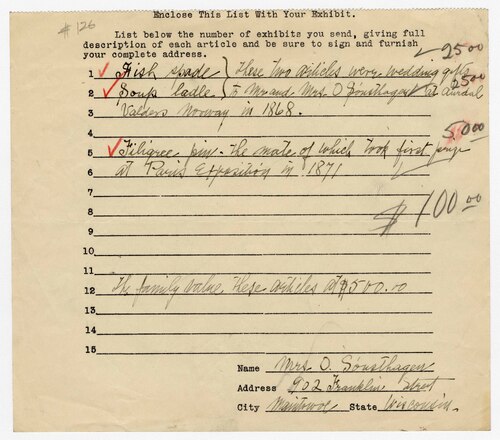 Enclose This List With Your Exhibit.
# 126
List below the number of exhibits you send, giving full
description of each article and be sure to sign and furnish
your complete address.
25 00
1 Fish spade } These two articles were wedding gifts
25 00
2 Soup ladle } to Mr and Mrs O Sonsthagen at Aurdal
3 Valders Norway in 1868.
4
50 00
5 Filigree pin - the mate of which took first prize
6 at Paris Exposition in 1871
7
8
$ 100 00
9
10
11
12 The family value these articles at $500.00
13
14
15
Name Mrs. O. Sonsthagen
Address 902 Franklin Street
City Manitowoc State Wisconsin.